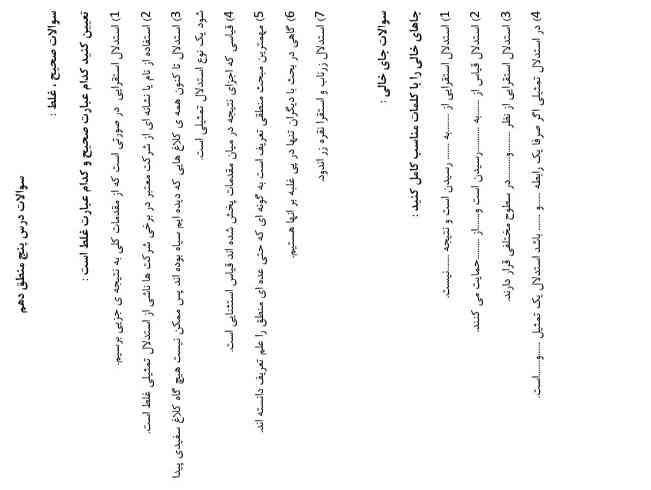 سوالات درس پنج منطق دهم
سوالات صحیح ، غلط :
تعیین کنید کدام عبارت صحیح و کدام عبارت غلط است :
1) استدلال استقرایی در صورتی است که از مقدمات کلی به نتیجه ی جزیی برسیم.
2) استفاده از نام یا نشانه ای از شرکت معتبر در برخی شرکت ها ناشی از استدلال تمثیلی غلط است.
3) استدلال تا کنون همه ی کلاغ هایی که دیده ایم سیاه بوده اند پس ممکن نیست هیچ گاه کلاغ سفیدی پیدا
شود یک نوع استدلال تمثیلی است.
4) قیاسی که اجزای نتیجه در میان مقدمات پخش شده اند قیاس استثنایی است.
5) مهمترین مبحث منطقی تعریف است به گونه ای که حتی عده ای منطق را علم تعریف دانسته اند.
6) گاهی در بحث با دیگران تنها در پی غلبه بر آنها هستیم.
7) استدلال زرناب و استقرا نقره زر اندود.
سوالات جای خالی :
جاهای خالی را با کلمات مناسب کامل کنید :
1) استدلال استقرایی از ......به ...... رسیدن است و نتیجه ......نیست.
2) استدلال قیاس از ......به .........رسیدن است و......از .........حمایت می کنند.
3) استدلال استقرایی از نظر ......و.........در سطوح مختلفی قرار دارند.
4) در استدلال تمثیلی اگر صرفا یک رابطه ......و ...... باشد استدلال یک تمثیل ......و......است.